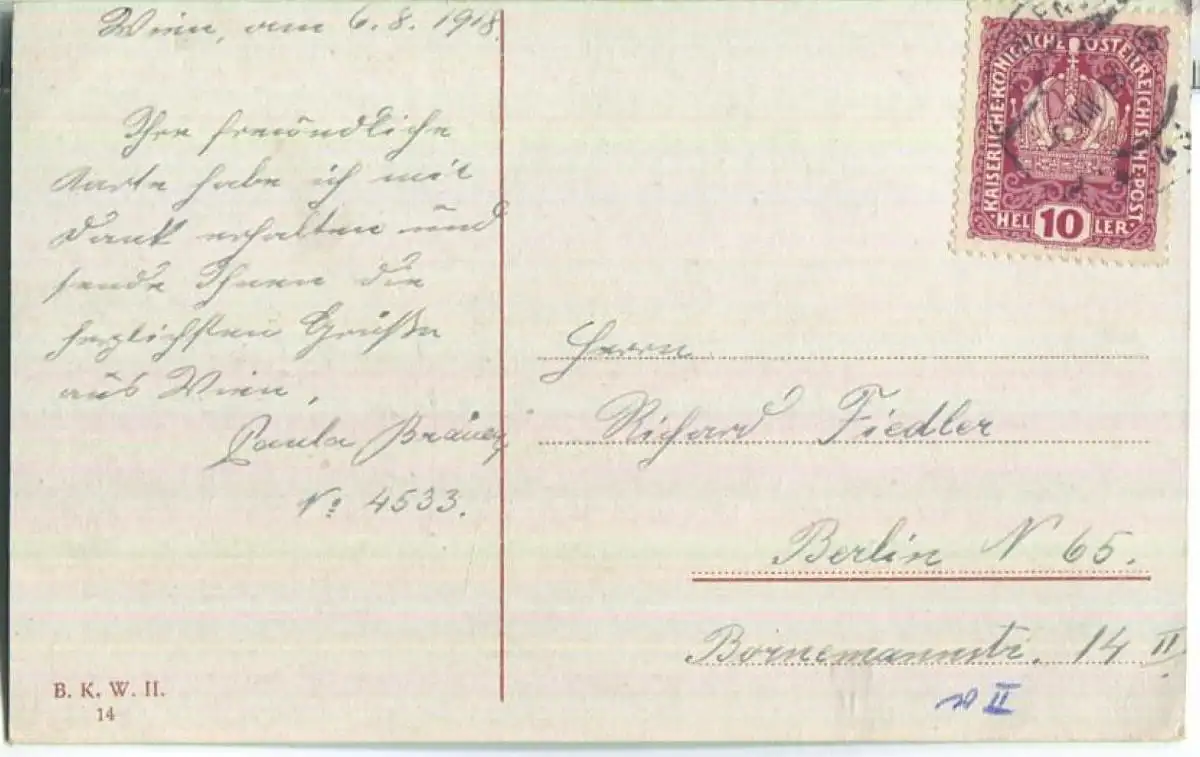 Wien, am 6.8.1918.
Ihre freundliche
Karte habe ich mit
Dank erhalten und
sende Ihnen die
herzlichsten Grüße
aus Wien.
Paula
No 4533.
B. K. W. II.
14
KAISERLICHE KÖNIGLICHE ÖSTERREICHISCHE POST
HELLER
10
Herrn
Richard Fiedler
Berlin N 65.
Bornemannstr. 14 II
II